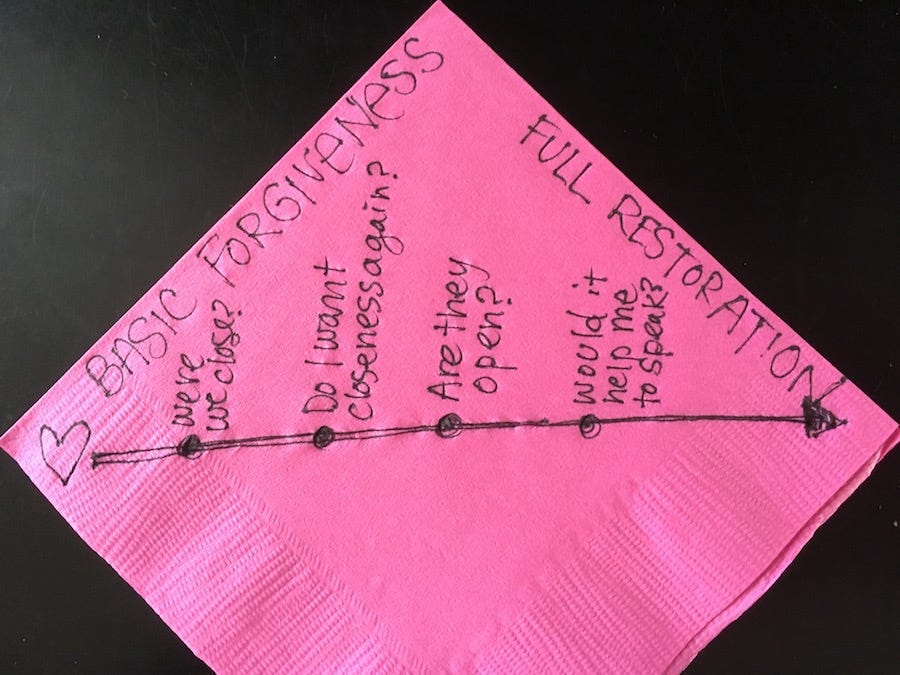 BASIC FORGIVENESS
FULL RESTORATION
were
we close?
Do I want
closeness again?
Are they
open?
would it
help me
to speak?